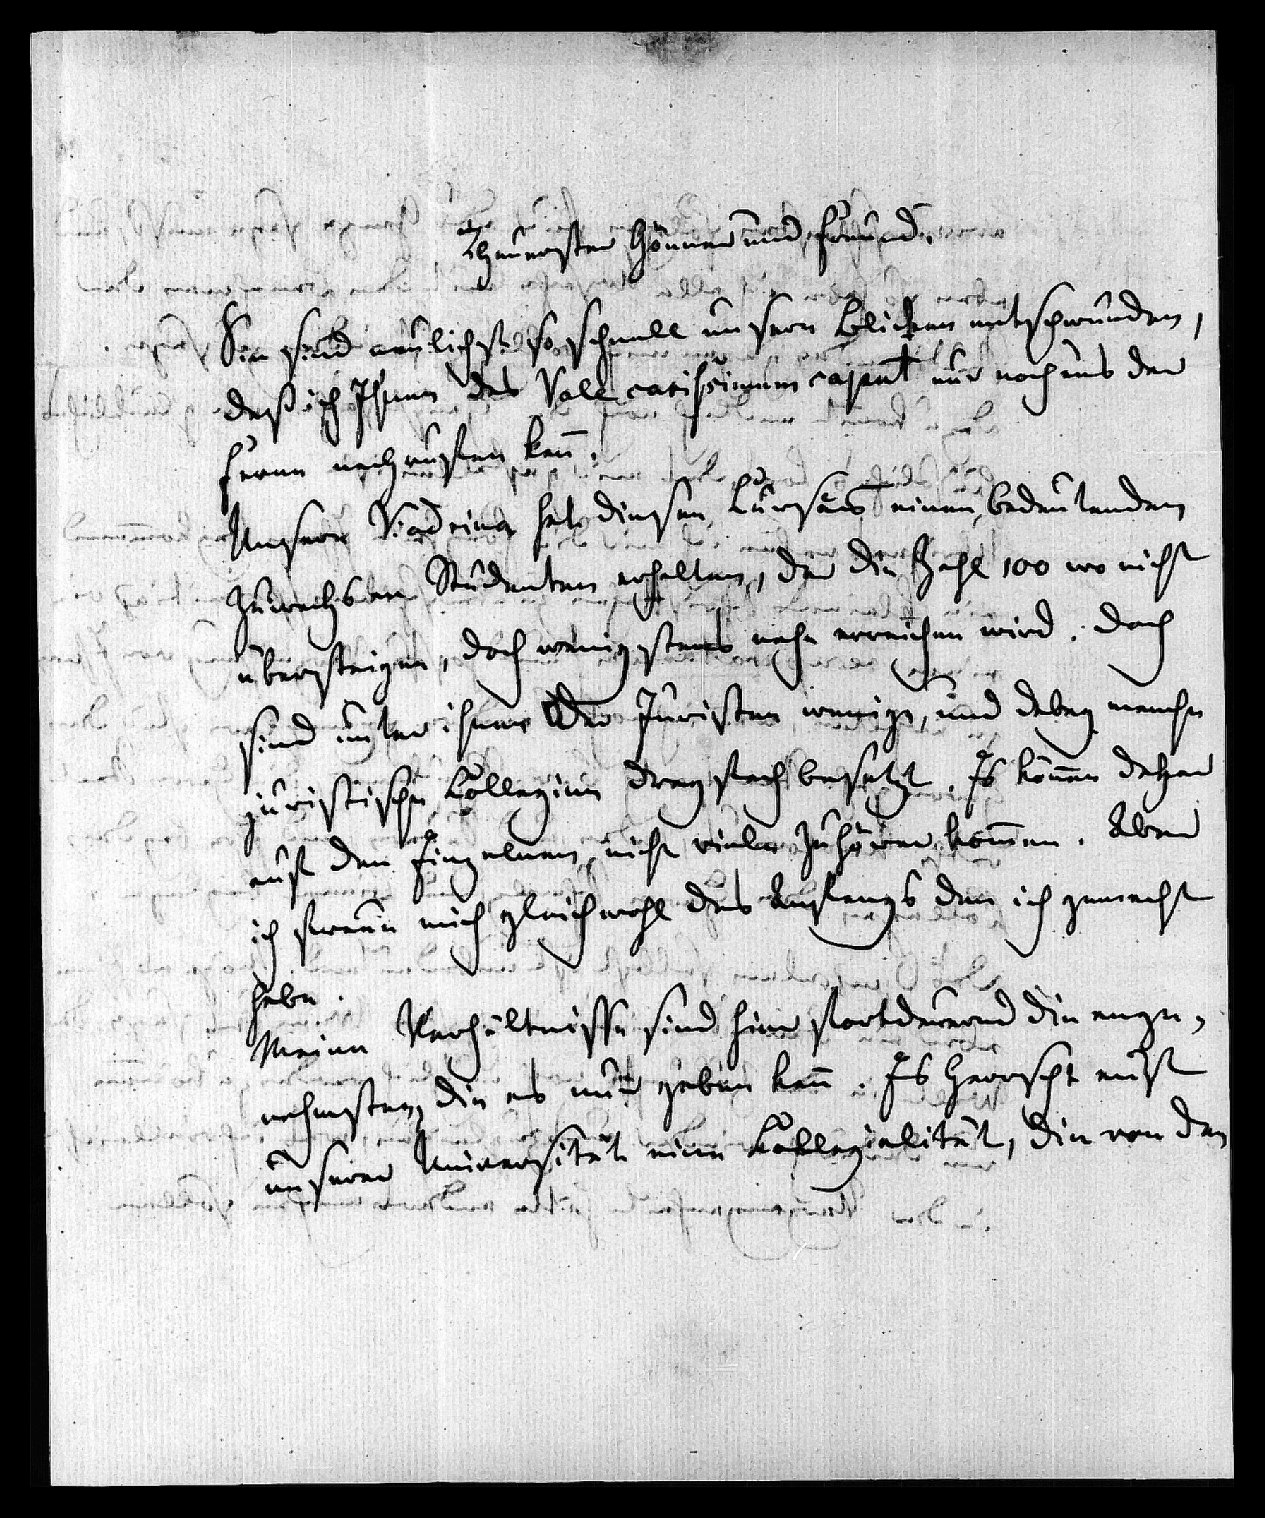 Theuerster Gönner und Freund.
Sie sind neulichst so schnell unsern Blicken entschwunden,
daß ich Ihnen das Vale carissimum caput nur noch aus der
Ferne nachrufen kan̅.
Unsere Viadrina hat diesen Cursus einen bedeutenden
Zuwachs an Studenten erhalten, der die Zahl 100 wo nicht
übersteigen, doch wenigstens nahe erreichen wird. Doch
sind unter ihnen der Juristen wenige, und dabey manche
juristische Collegien dreyfach besetzt. Es kön̅en daher
auf den Einzelnen nicht viele Zuhörer kom̅en. Aber
ich freue mich gleichwohl des Anfangs den ich gemacht
habe.
Meine Verhältnisse sind hier fortdauernd die ange-
nehmsten, die es nur geben kan̅. Es herrscht auf
unserer Universität eine Collegialität, die von den